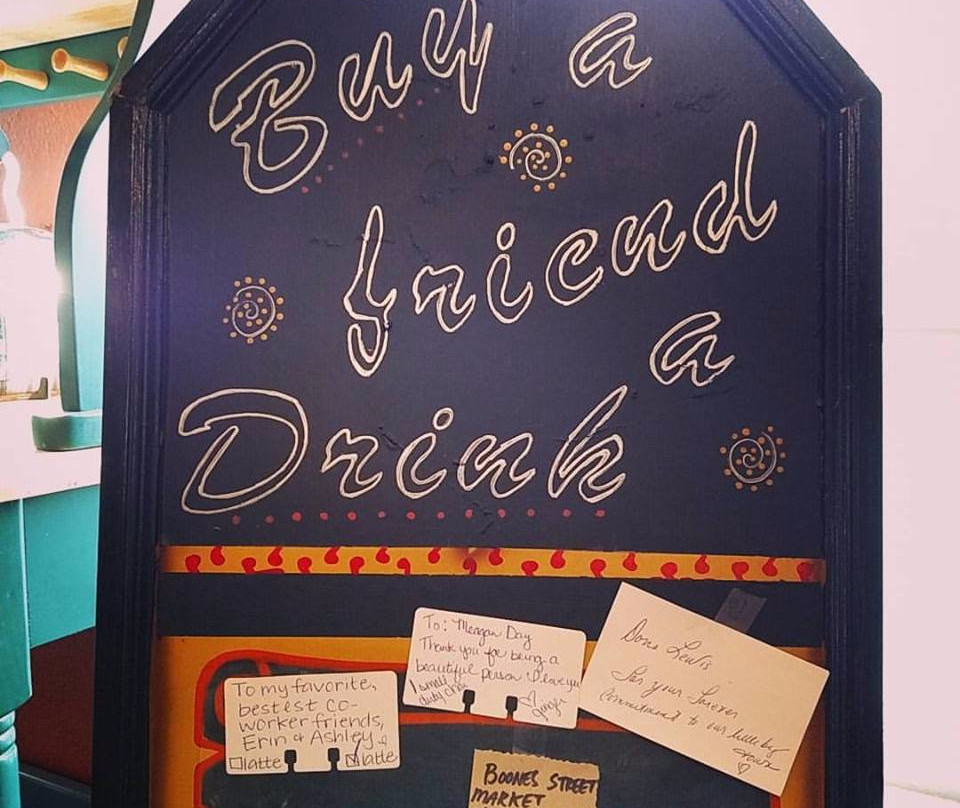 Buy a
friend
a
Drink
To: Meagan Day
Thank you for being a
beautiful person I love you
1 small
dirty chai
Ginger
To my favorite,
bestest co-
worker friends,
Erin & Ashley
latte
latte
Lewis
for your
commitment to our little
BOONES STREET
MARKET